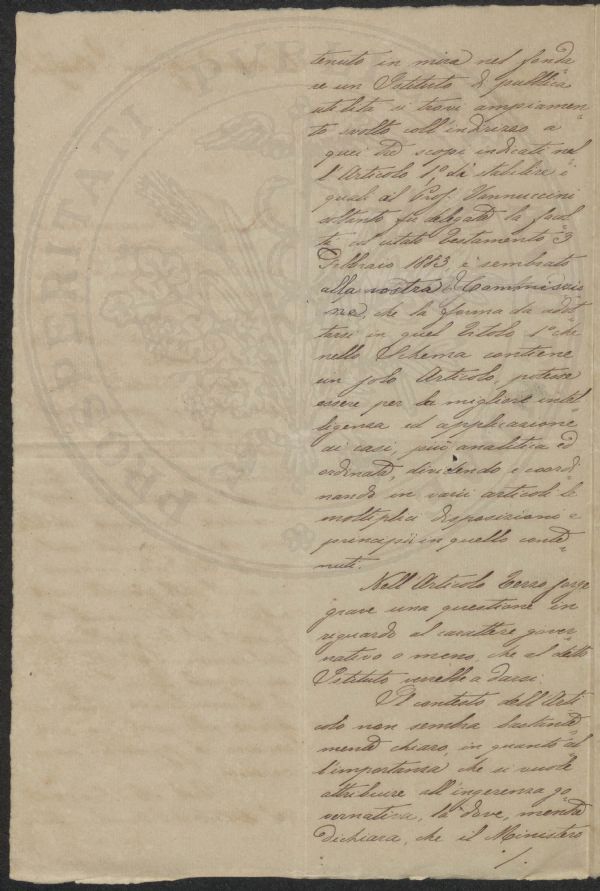 tenuto in mira nel fonda
re un Istituto di pubblica
utilità si trovi ampiamen
te svolto coll'indirizzo a
quei tre scopi indicati nel
l'Articolo 1º di stabilire i
quali al Prof. Vannuccini
soltanto fu delegata la facol
tà col citato Testamento 3
Febbraio 1863, è sembrato
alla vostra Commissio
ne, che la forma da adot
tarsi in quel Titolo 1º che
nello Schema contiene
un solo Articolo, potesse
essere per la migliore intel
ligenza ed applicazione
ai casi, più analitica ed
ordinata, dividendo e coordi
nando in varii articoli le
moltiplici disposizioni e
principii in quello conte
nuti.
Nell'Articolo Terzo sorge
grave una questione in
riguardo al carattere gover
nativo o meno, che al detto
Istituto verrebbe a darsi.
Il contesto dell'Arti
colo non sembra bastante
mente chiaro, in quanto al
l'importanza che si vuole
attribuire all'ingerenza go
vernativa, là dove, mentre
dichiara, che il Ministero
./.
PROSPERITATI PUBL